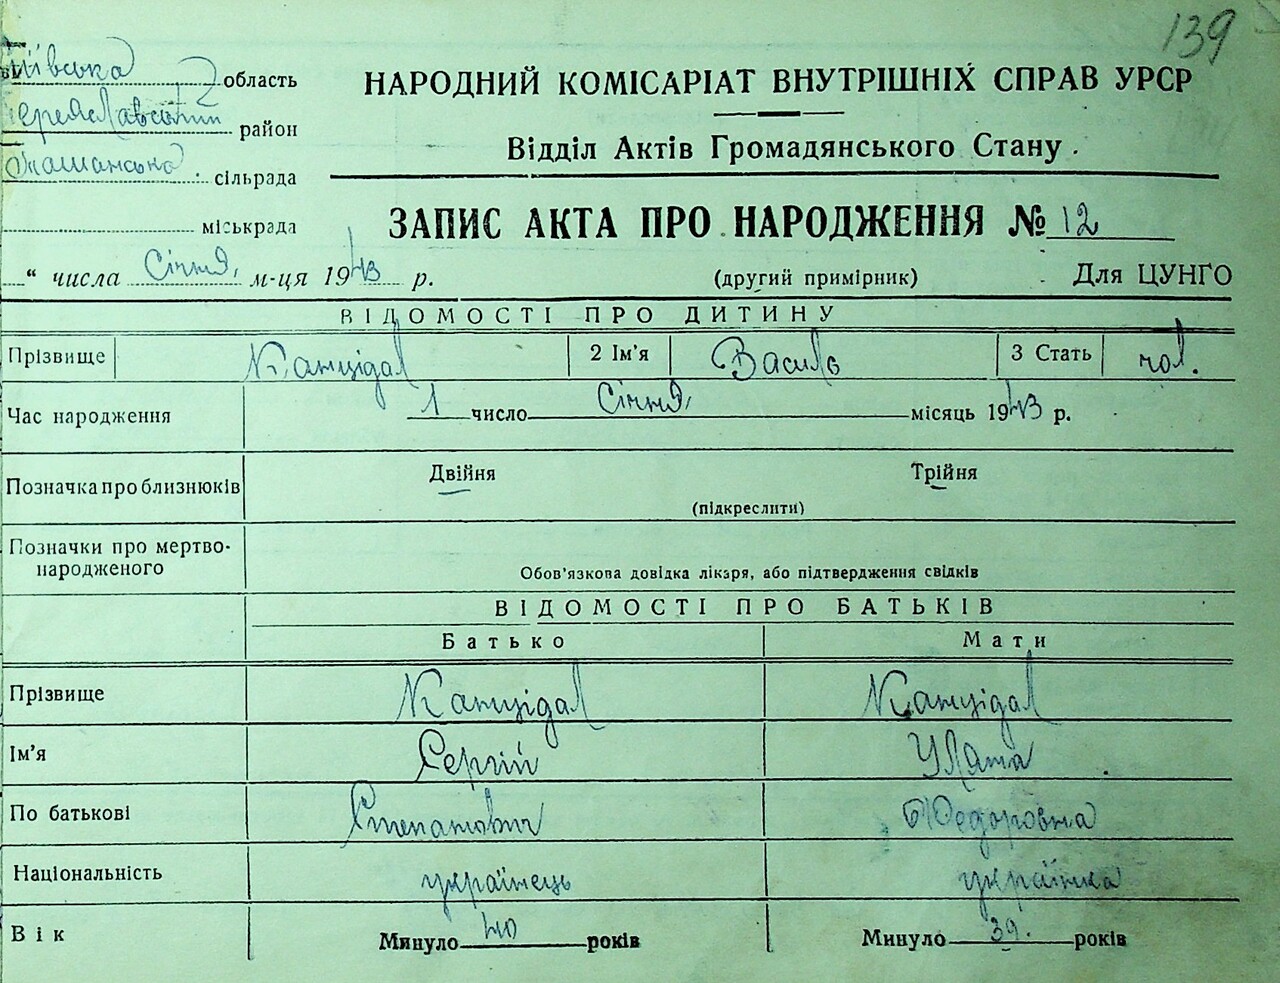 139
Київська область
НАРОДНИЙ КОМІСАРІАТ ВНУТРІШНІХ СПРАВ УРСР
Переяславський район
Відділ Актів Громадянського Стану .
Ташанська сільрада
міськрада
ЗАПИС АКТА ПРО НАРОДЖЕННЯ № 12
“ числа Січня м-ця 1943 р.
(другий примірник) Для ЦУНГО
ВІДОМОСТІ ПРО ДИТИНУ
Прізвище Канцідал 2 Ім'я Василь 3 Стать чол.
Час народження 1 число Січня місяць 1943 р.
Позначка про близнюків Двійня Трійня
(підкреслити)
Позначки про мертво-
народженого
Обов'язкова довідка лікаря, або підтвердження свідків
ВІДОМОСТІ ПРО БАТЬКІВ
Батько Мати
Прізвище Канцідал Канцідал
Ім'я Сергій Уляна
По батькові Степанович Федоровна
Національність українець українка
Вік Минуло 40 років Минуло 39. років